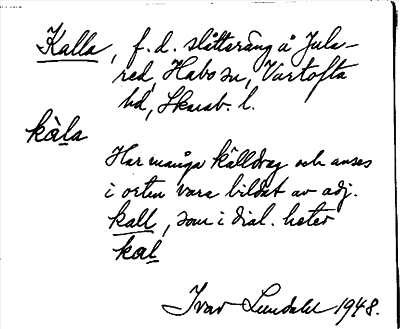 Kalla, f. d. slåtteräng å Jula-
red, Habo sn, Vartofta
hd, Skarab. l.
kàla
Har många källdrag och anses
i orten vara bildat av adj.
kall, som i dial. heter
kal
Ivar Lundahl 1948.